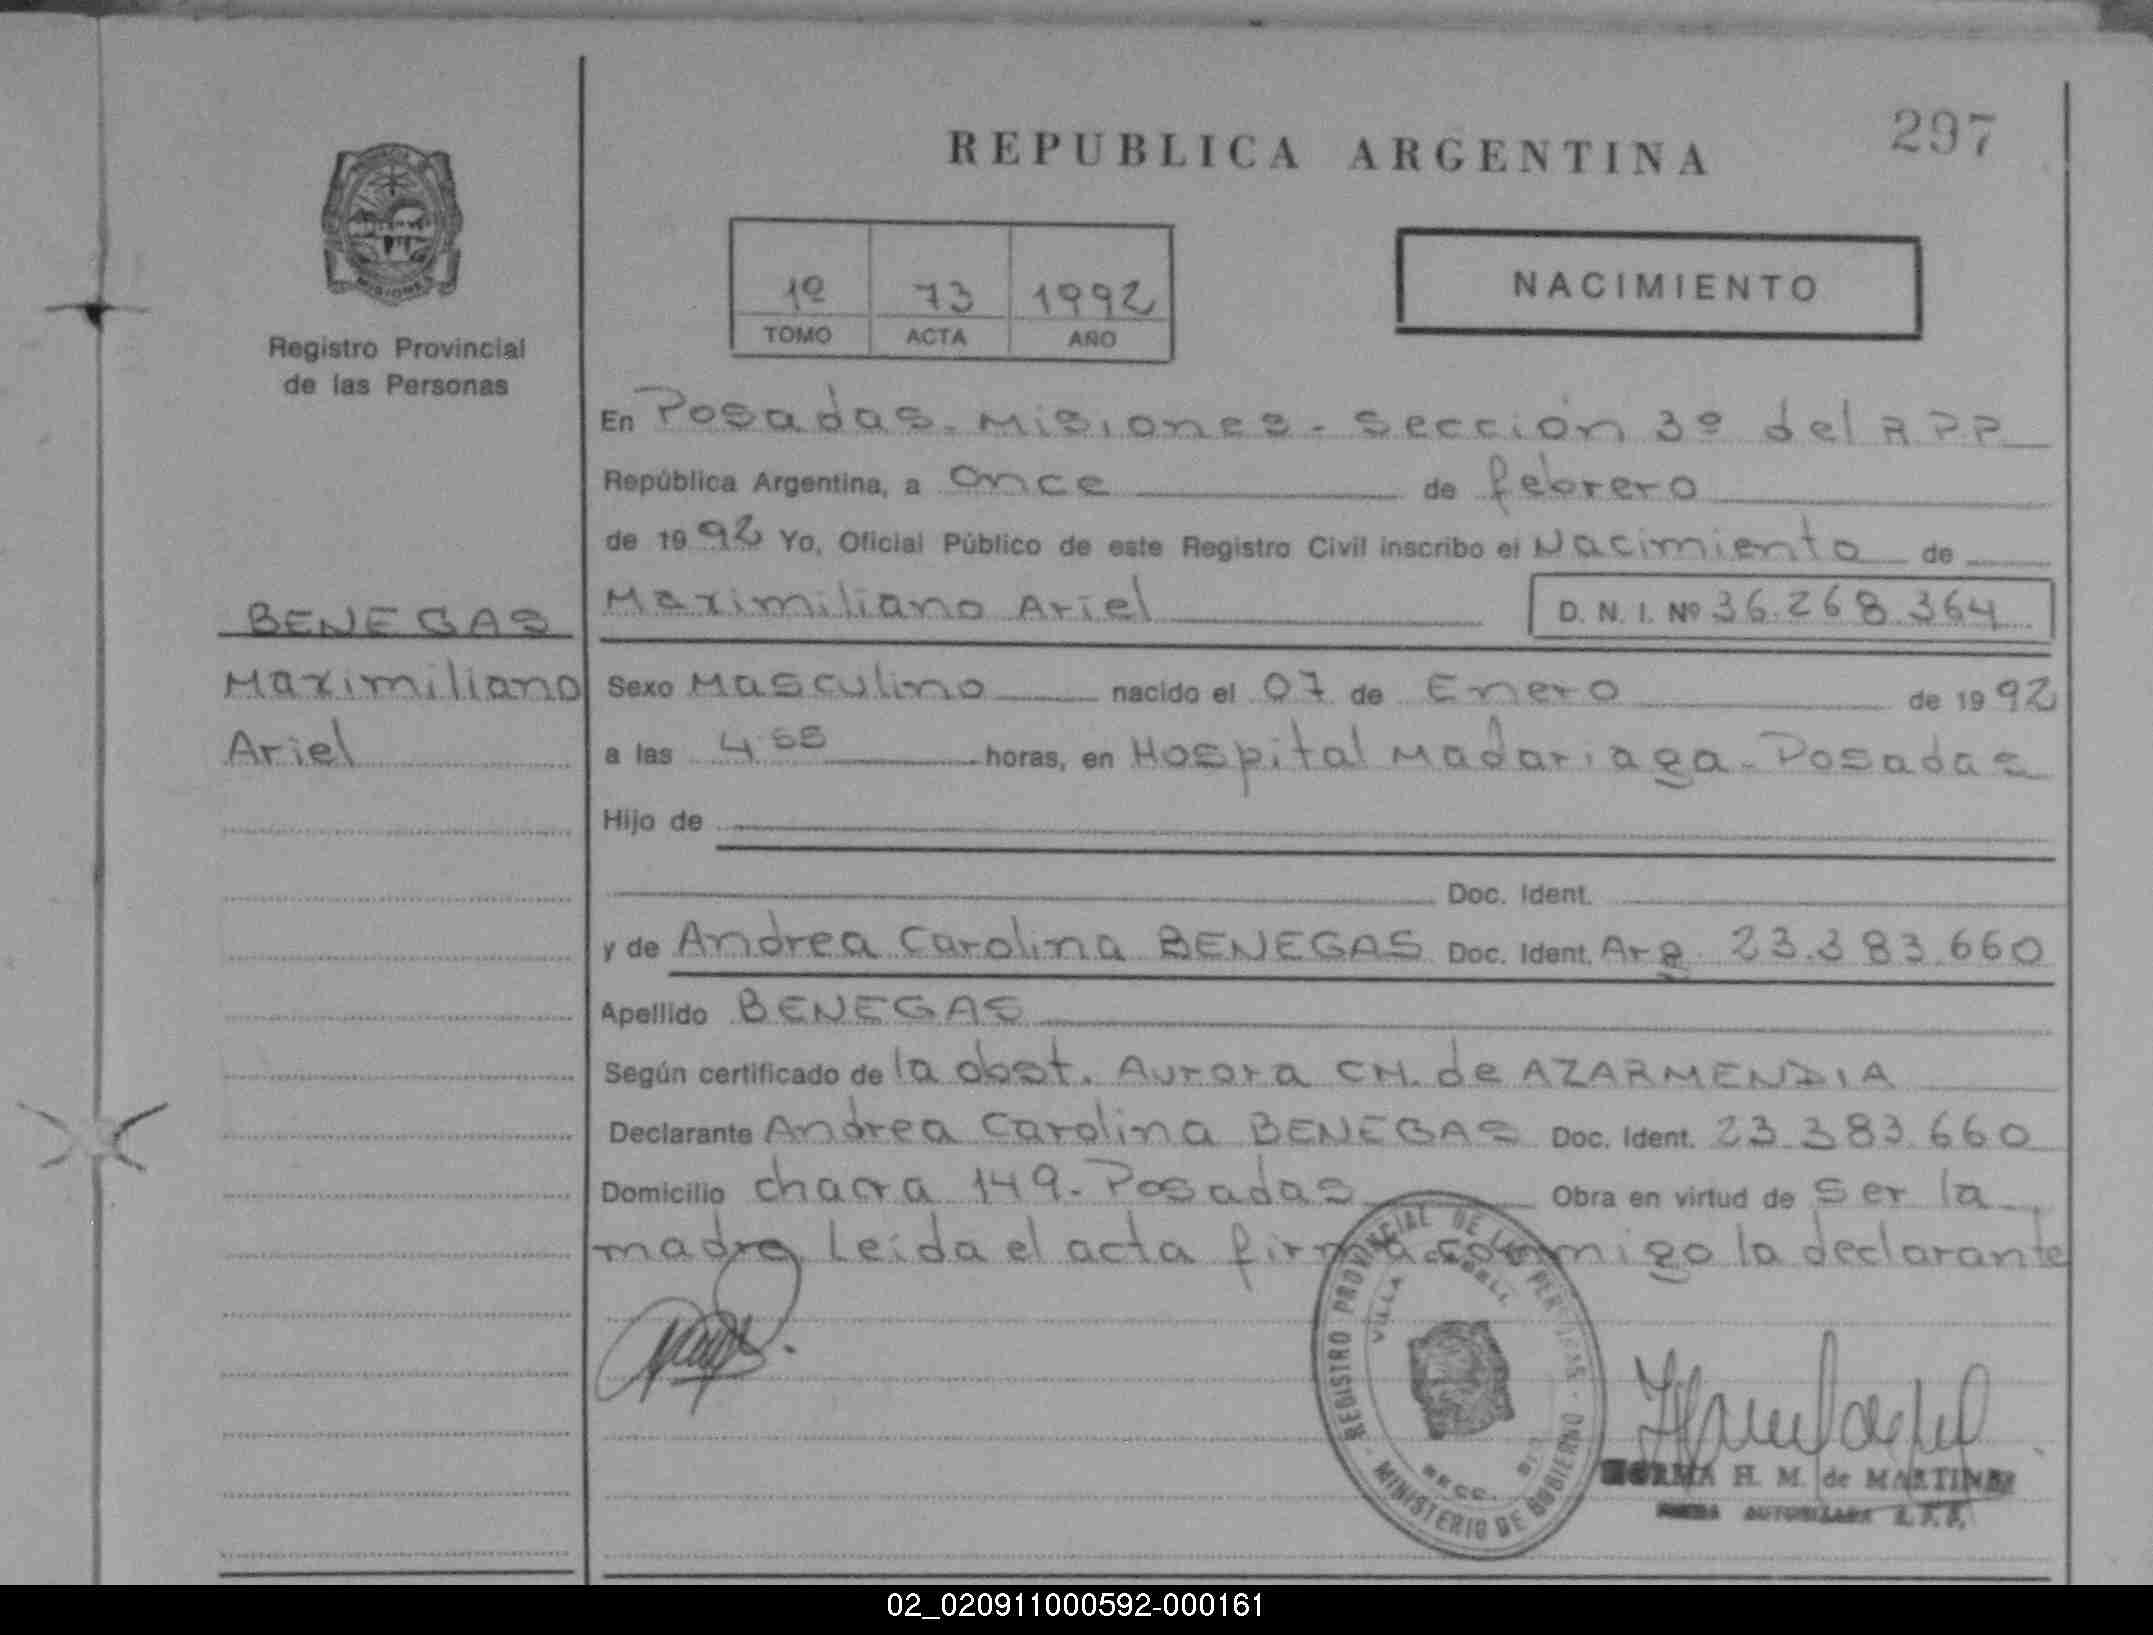 297
REPUBLICA ARGENTINA
MISIONES
Registro Provincial
de las Personas
1º 73 1992
TOMO ACTA AÑO
NACIMIENTO
En Posadas - Misiones - Sección 3º del RPP
República Argentina, a once de febrero
de 1992 Yo, Oficial Público de este Registro Civil inscribo el Nacimiento de
Maximiliano Ariel D. N. I. Nº 36.268.364
BENEGAS
Maximiliano
Ariel
Sexo Masculino nacido el 07 de Enero de 1992
a las 4.55 horas, en Hospital Madariaga - Posadas
Hijo de
Doc. Ident.
y de Andrea Carolina BENEGAS Doc. Ident. Arg. 23.383.660
Apellido BENEGAS
Según certificado de la obst. Aurora CH. de AZARMENDIA
Declarante Andrea Carolina BENEGAS Doc. Ident. 23.383.660
Domicilio chacra 149 - Posadas Obra en virtud de ser la
madre. Leida el acta firma conmigo la declarante
REGISTRO PROVINCIAL DE LAS PERSONAS
VILLA
SECC.
MINISTERIO DE GOBIERNO
NORMA H. M. de MARTINEZ
AUTORIZADA
02_020911000592-000161